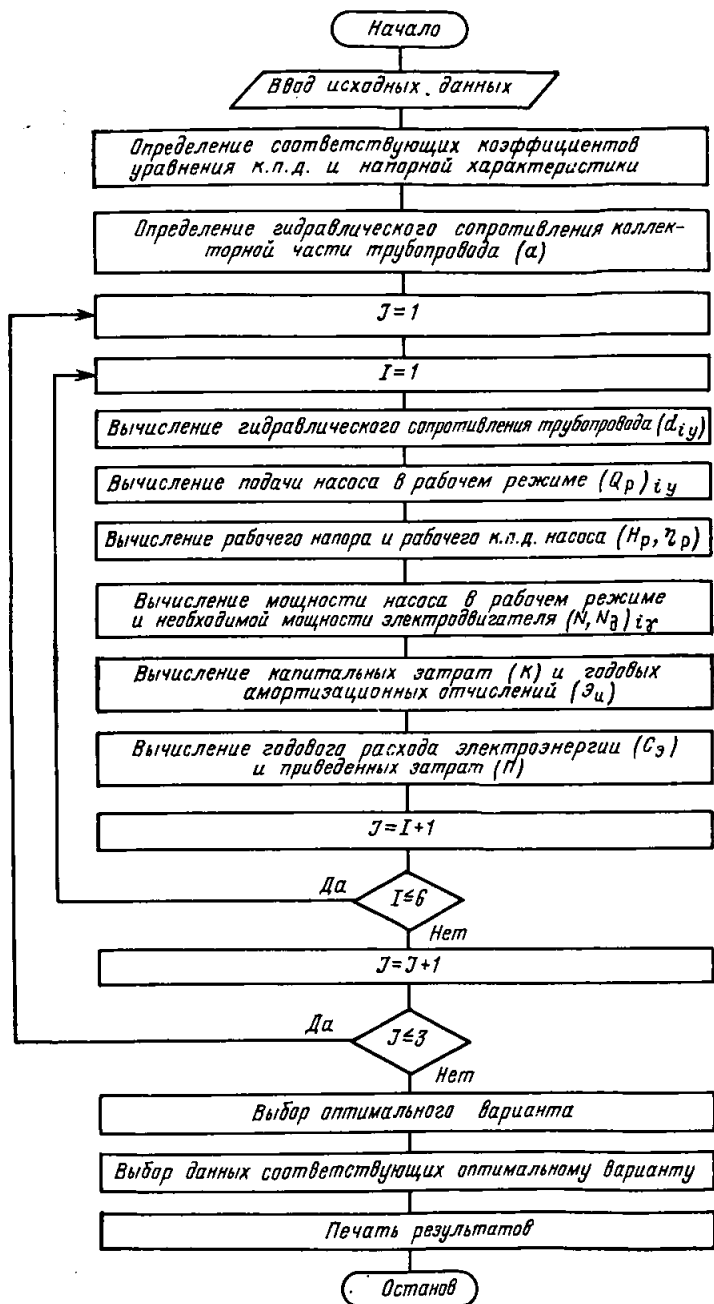 Начало
Ввод исходных данных
Определение соответствующих коэффициентов
уравнения к.п.д. и напорной характеристики
Определение гидравлического сопротивления коллек-
торной части трубопровода (a)
J=1
I=1
Вычисление гидравлического сопротивления трубопровода (d_iy)
Вычисление подачи насоса в рабочем режиме (Q_p)_iy
Вычисление рабочего напора и рабочего к.п.д. насоса (H_p, η_p)
Вычисление мощности насоса в рабочем режиме
и необходимой мощности электродвигателя (N, N_д)_iγ
Вычисление капитальных затрат (К) и годовых
амортизационных отчислений (Э_и)
Вычисление годового расхода электроэнергии (С_э)
и приведенных затрат (П)
J=I+1
Да
I≤6
Нет
J=J+1
Да
J≤3
Нет
Выбор оптимального варианта
Выбор данных соответствующих оптимальному варианту
Печать результатов
Останов